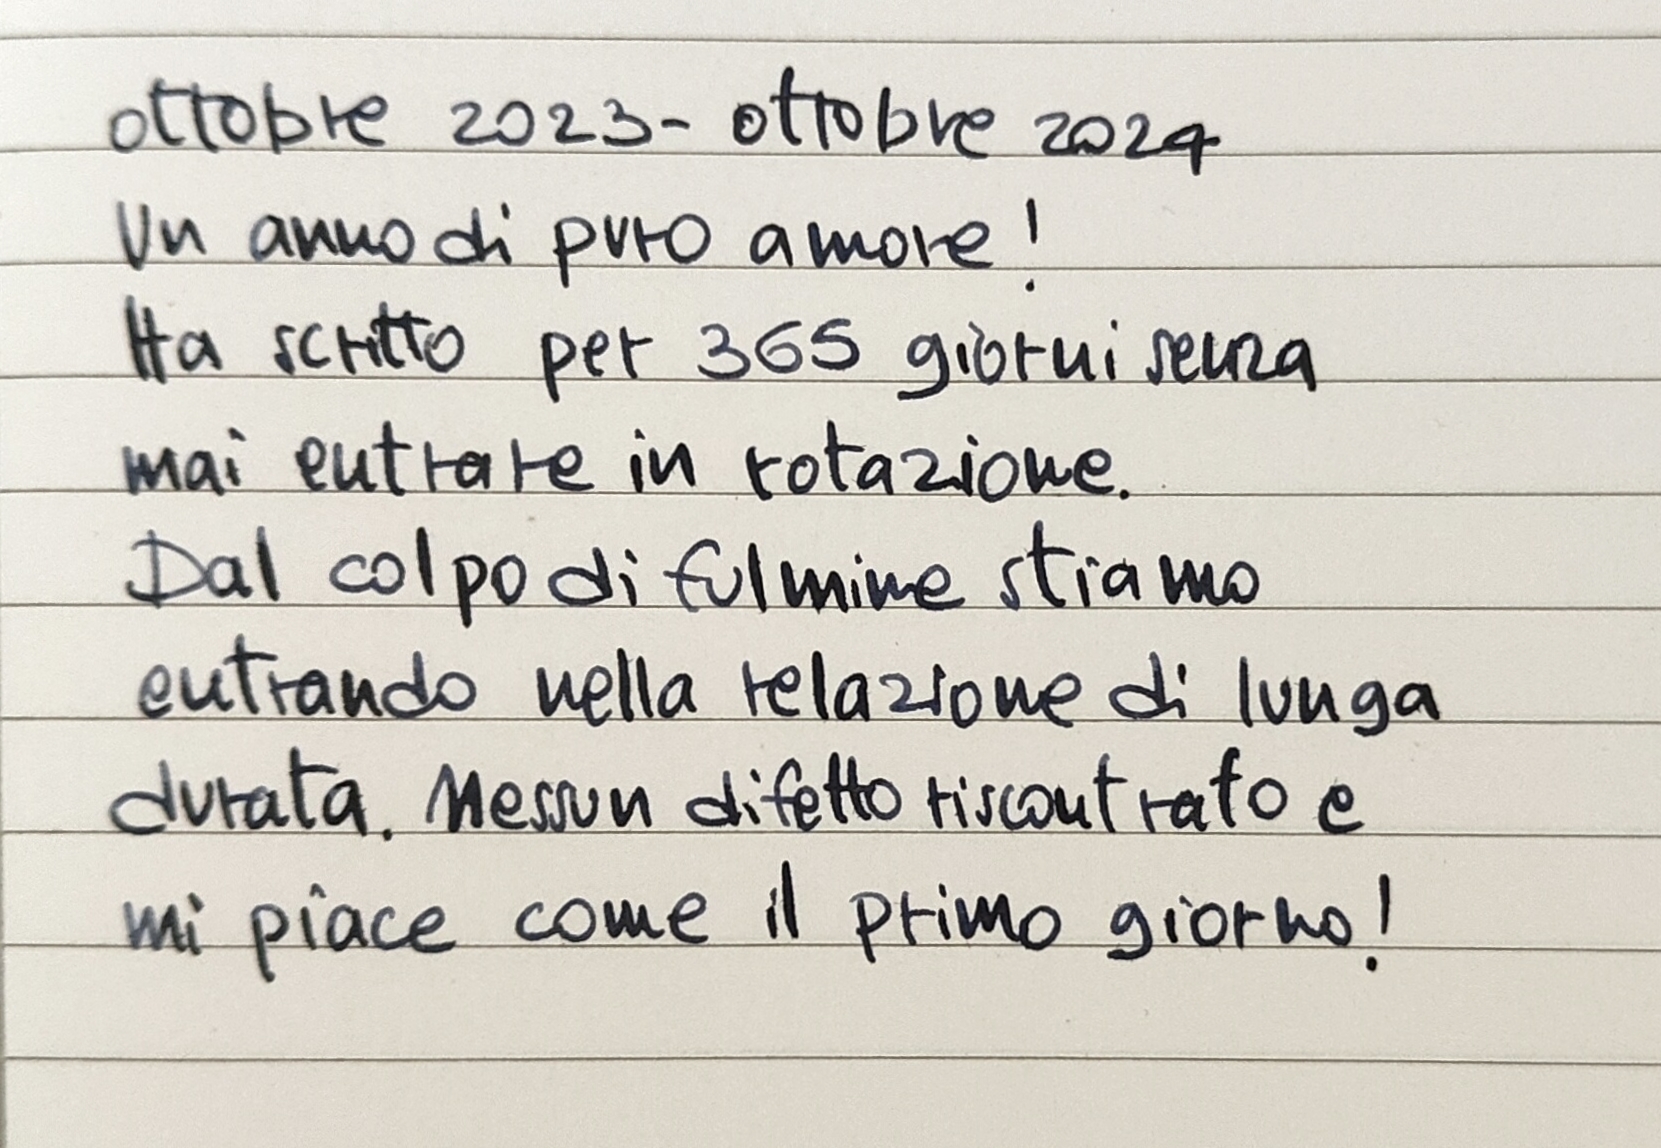 ottobre 2023- ottobre 2024
Un anno di puro amore!
Ha scritto per 365 giorni senza
mai entrare in rotazione.
Dal colpo di fulmine stiamo
entrando nella relazione di lunga
durata. Nessun difetto riscontrato e
mi piace come il primo giorno!